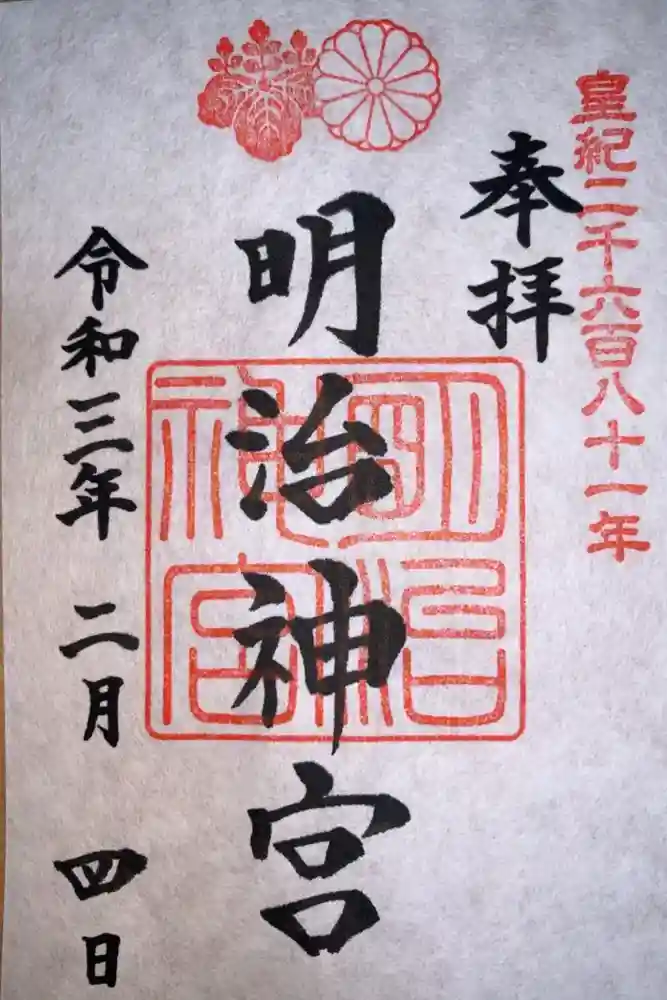 皇紀二千六百八十一年
奉拝
明治神宮
明治神宮
令和三年 二月 四日